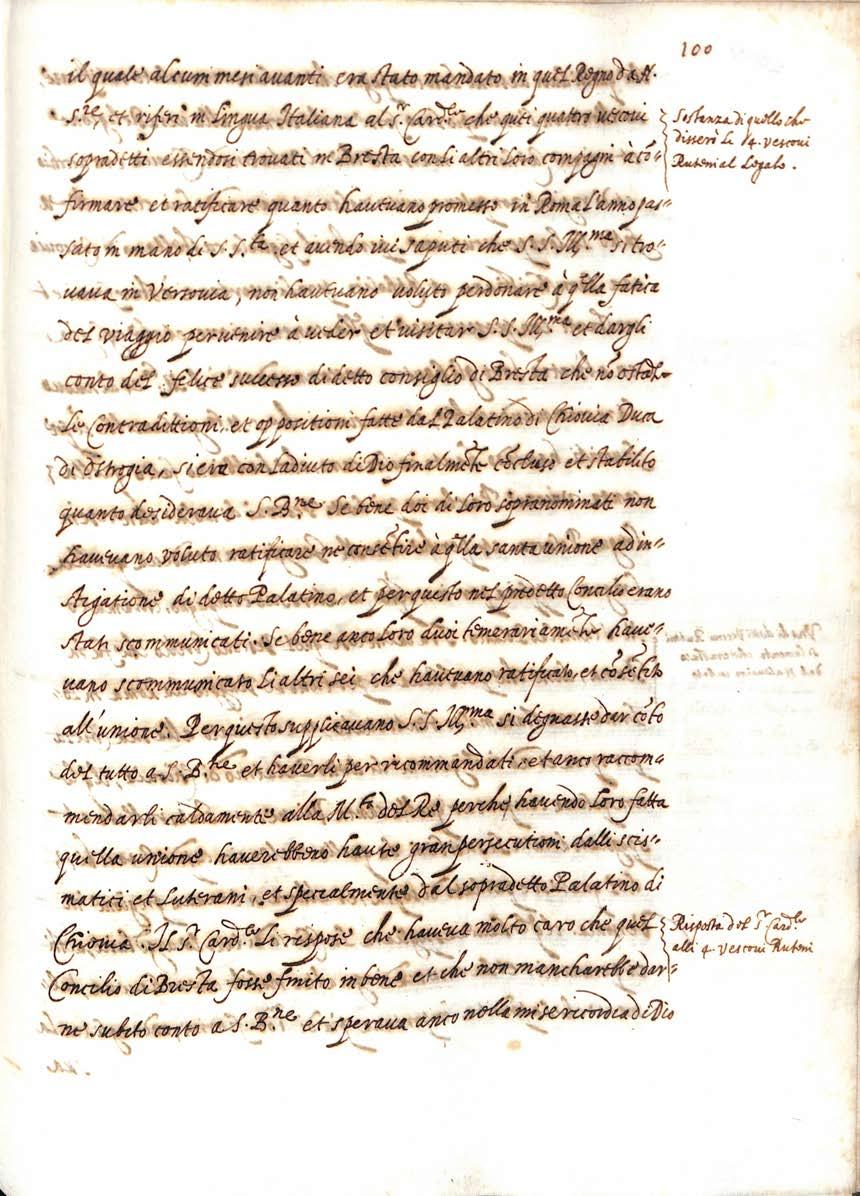 100
il quale alcuni mesi avanti era stato mandato in quel Regno da N.
S.re, et riferì in lingua Italiana al S.r Card.le che quei quattro vescovi
sopradetti essendosi trovati in Bresta con li altri loro compagni à cō=
firmare et ratificare quanto havevano promesso in Roma l'anno pas=
sato in mano di S. S.tà et avendo ivi saputi che S. S. Ill.ma si tro=
vava in Versovia, non havevano voluto perdonare à q̃lla fatica
del viaggio per venire à veder et visitar S. S. Ill.ma et dargli
conto del felice successo di detto consiglio di Bresta che nō ostāt=
le contradittioni et oppositioni fatte dal Palatino di Chiovia Duca
di Ostrogia, si era con l'adiuto di Dio finalmēte cōcluso et stabilito
quanto desiderava S. B.ne Se bene doi di loro sopranominati non
havevano voluto ratificare ne consētire à q̃lla santa unione ad in=
stigatione di detto Palatino, et per questo nel p̃detto Concilio erano
stati scommunicati. Se bene anco loro duoi temerariamēte have=
vano scommunicato li altri sei che havevano ratificato, et cōsētito
all'unione. Per questo supplicavano S. S. Ill.ma si degnasse dar cōto
del tutto a S. B.ne et haverli per ricommandati, et anco raccom=
mendarli caldamente alla M.tà del Re perche havendo loro fatta
quella unione haverebbero haute gran persecutioni dalli scis=
matici et Luterani, et specialmente dal sopradetto Palatino di
Chiovia. Il S.r Card.le li rispose che haveva molto caro che quel
Concilio di Bresta fosse finito in bene et che non mancharebbe dar=
ne subito conto a S. B.ne et sperava anco nella misericordia di Dio
Sostanza di quello che
dissero li 4. vescovi
Ruteni al Legato.
Risposta del S.r Card.le
alli 4. vescovi Ruteni